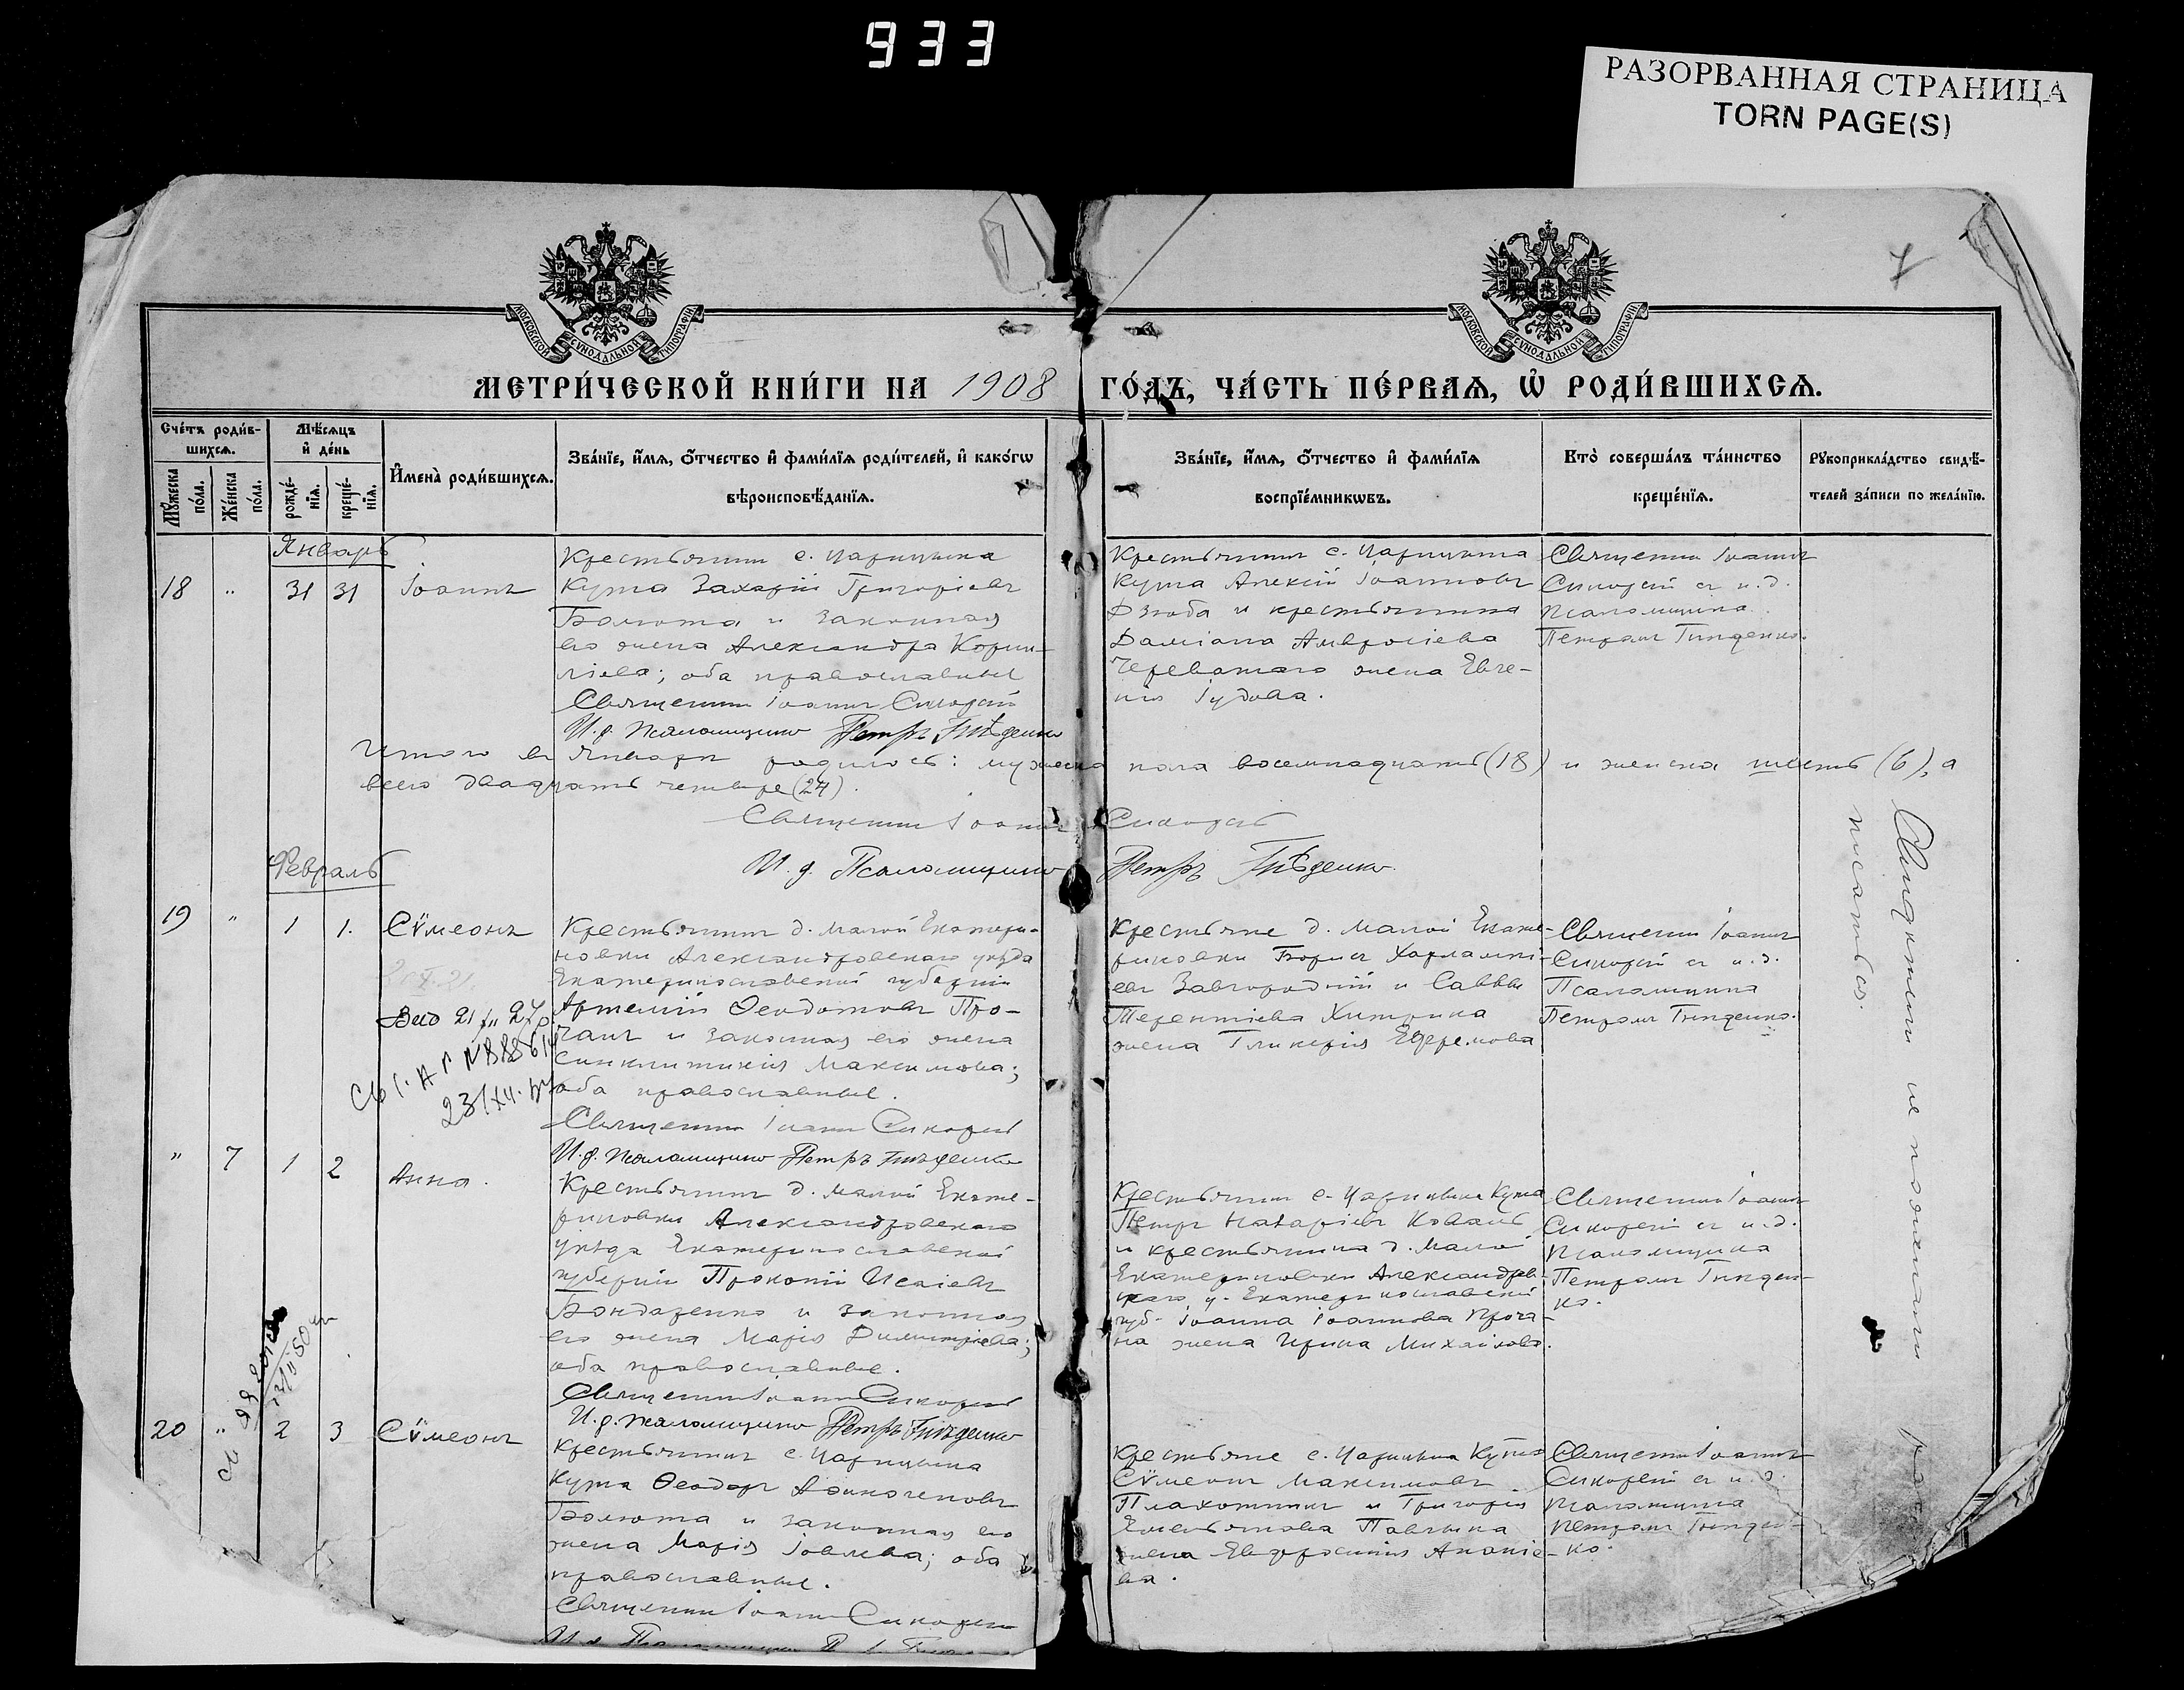 933
РАЗОРВАННАЯ СТРАНИЦА
TORN PAGE(S)
МОСКОВСКОЙ СѴНОДАЛЬНОЙ ТИПОГРАФІИ
МОСКОВСКОЙ СѴНОДАЛЬНОЙ ТИПОГРАФІИ
МЕТРИ́ЧЕСКОЙ КНИ́ГИ НА 1908 ГО́ДЪ, ЧА́СТЬ ПЕ́РВАѦ, Ѡ҆ РОДИ́ВШИХСѦ.
Сче́тъ роди́в-
шихсѧ.
Мꙋ́жеска по́ла.
Же́нска по́ла.
Мѣ́сѧцъ
и҆ де́нь
рожде́-
нїѧ.
креще́-
нїѧ.
И҆мена̀ роди́вшихсѧ.
Зва́нїе, и҆́мѧ, ѻ҆́тчество и҆ фами́лїѧ роди́телей, и҆ како́гѡ
вѣроисповѣ́данїѧ.
Зва́нїе, и҆́мѧ, ѻ҆́тчество и҆ фами́лїѧ
воспрїе́мникѡвъ.
Кто̀ соверша́лъ та́инство
креще́нїѧ.
Рꙋкоприкла́дство свидѣ́-
телей за́писи по жела́нїю.
Январь
18 " 31 31 Іоаннъ
Крестьянин с. Царицына
Кута Захарій Григоріевъ
Болюта и законная
его жена Александра Корни-
ліева; оба православные
Священник Іоанн Сикорскій
И. д. Псаломщика Петръ Гнѣденко
Крестьянин с. Царицына
Кута Алексій Іоанновъ
Дзюба и крестьянина
Даміана Амвросіева
Череватаго жена Евге-
нія Іудова.
Священник Іоаннъ
Сикорскій съ и. д.
псаломщика
Петромъ Гнѣденко.
Итого въ Январѣ родилось: мужеска пола восемнадцать (18) и женска шесть (6), а
всего двадцать четыре (24).
Священник Іоаннъ Сикорскій
И. д. Псаломщика Петръ Гнѣденко.
Февраль
19 " 1 1. Сѵмеонъ
Крестьянин д. Малой Екатери-
новки Александровскаго уѣзда
Екатеринославской губерніи
Артемій Ѳеодотовъ Про-
чанъ и законная его жена
Синклитикія Максимова;
оба православные.
Священник Іоаннъ Сикорскій
И. д. Псаломщика Петръ Гнѣденко
Крестьяне д. Малой Екате-
риновки Борисъ Харлампі-
евъ Завгородній и Саввы
Терентіева Хитрика
жена Гликерія Ефремова
Священник Іоаннъ
Сикорскій съ и. д.
Псаломщика
Петромъ Гнѣденко.
" 7 1 2 Анна.
Крестьянин д. Малой Екате-
риновки Александровскаго
уѣзда Екатеринославской
губерніи Прокопій Исаіевъ
Бондаренко и законная
его жена Марія Димитріева;
оба православные.
Священник Іоаннъ Сикорскій
И. д. Псаломщика Петръ Гнѣденко
Крестьянин с. Царицына Кута
Петръ Назаріевъ Коваль
и крестьянина д. Малой
Екатериновки Александров-
скаго у. Екатеринославской
губ. Іоанна Іоаннова Проча-
на жена Ирина Михайлова.
Священник Іоаннъ
Сикорскій съ и. д.
псаломщика
Петромъ Гнѣден-
ко.
20 " 2 3 Сѵмеонъ
Крестьянинъ с. Царицына
Кута Ѳеодоръ
Болюта и законная его
жена Марія Іовлева; оба
православные.
Священник Іоаннъ Сикорскій
Крестьяне с. Царицына Кута
Сѵмеонъ Максимовъ
Плахотникъ и Григорія
Емельянова Павлыка
жена Евфросинія Ананіе-
ва.
Священник Іоаннъ
Сикорскій съ и. д.
псаломщика
Петромъ Гнѣден-
ко.
Свидѣтели не пожелали
писаться.